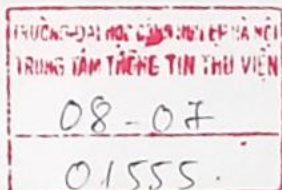 TRƯỜNG ĐẠI HỌC CÔNG NGHIỆP HÀ NỘI
TRUNG TÂM THÔNG TIN THƯ VIỆN
08-07
01555.